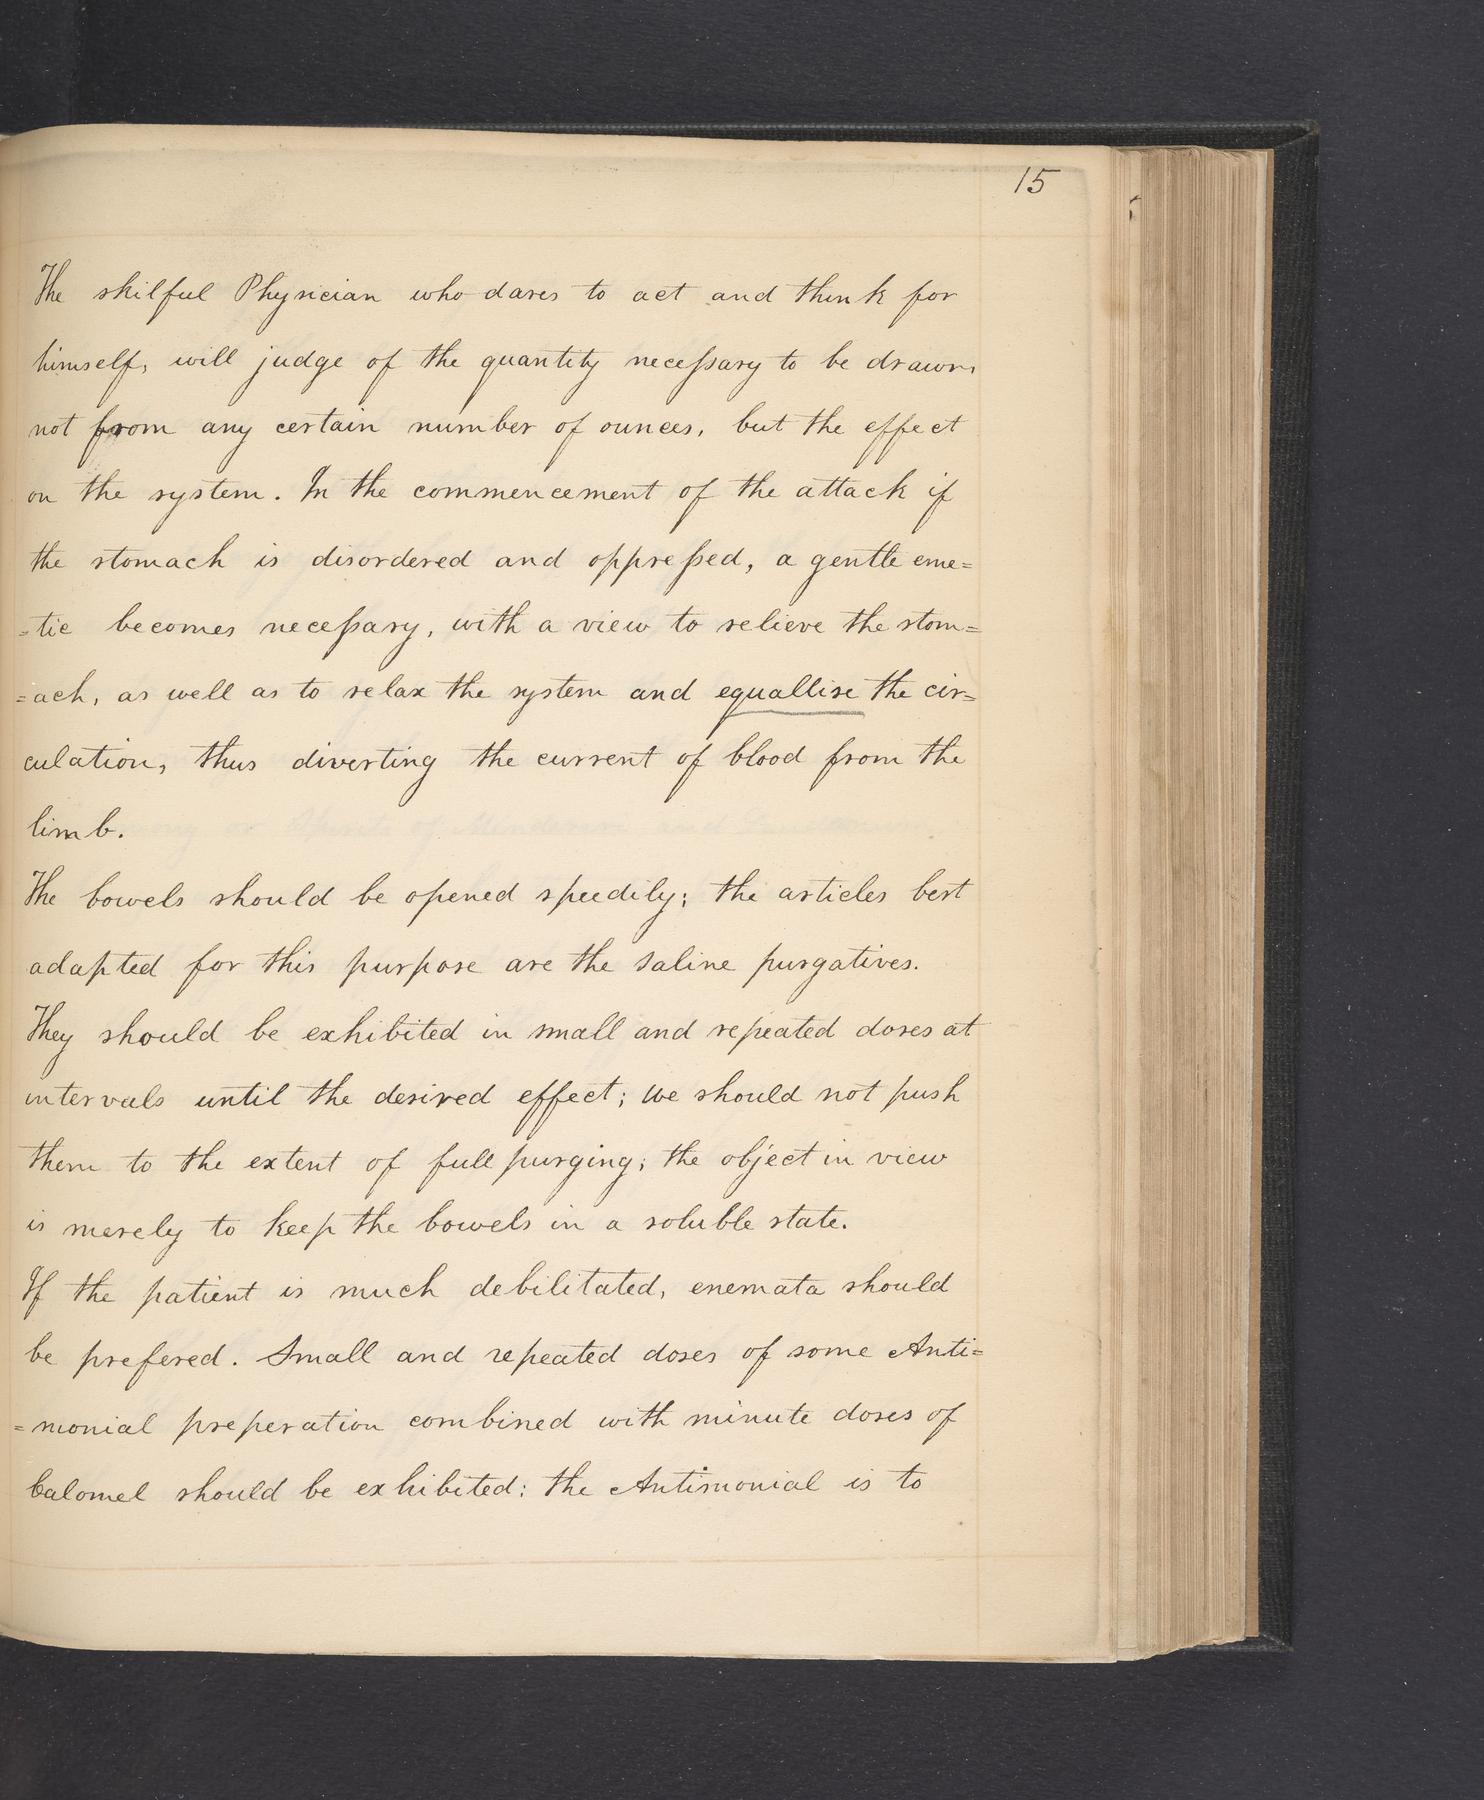 15
The skilful Physician who dares to act and think for
himself, will judge of the quantity necessary to be drawn,
not from any certain number of ounces, but the effect
on the system. In the commencement of the attack if
the stomach is disordered and oppressed, a gentle eme=
=tic becomes necessary, with a view to relieve the stom=
=ach, as well as to relax the system and equallise the cir=
culation, thus diverting the current of blood from the
limb.
The bowels should be opened speedily; the articles best
adapted for this purpose are the saline purgatives.
They should be exhibited in small and repeated doses at
intervals until the desired effect; we should not push
them to the extent of full purging; the object in view
is merely to keep the bowels in a soluble state.
If the patient is much debilitated, enemata should
be prefered. Small and repeated doses of some Anti=
=monial preperation combined with minute doses of
Calomel should be exhibited: the Antimonial is to